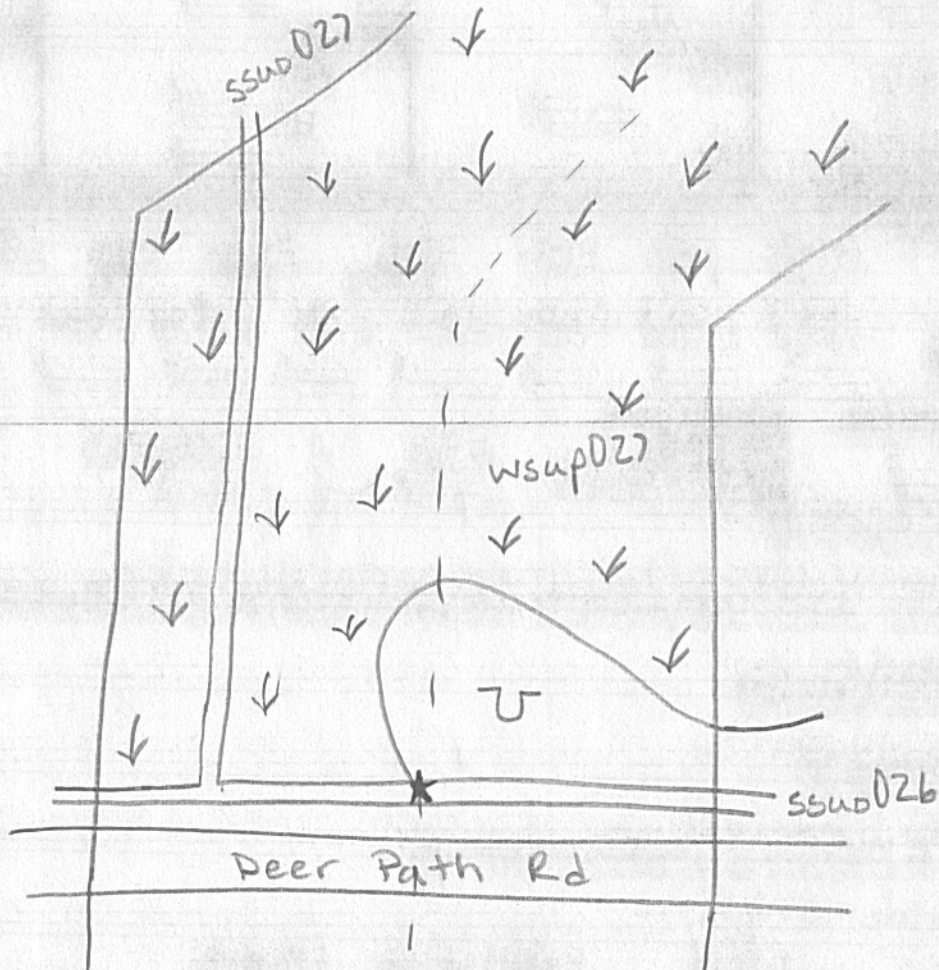 ssup027
wsup027
U
ssup026
Deer Path Rd